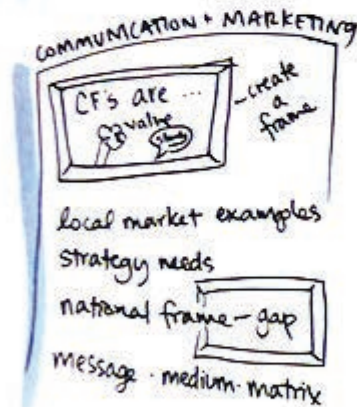 COMMUNICATION + MARKETING
CF's are ...
value
- create
a
frame
local market examples
strategy needs
national frame - gap
message · medium · matrix